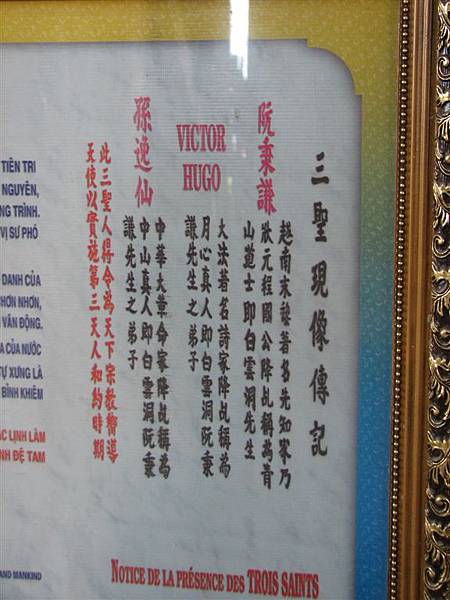 三聖現像傳記
阮秉謙
越南末著名先知家乃
狀元程國公降乩稱為青
山道士即白雲洞先生
VICTOR
HUGO
大法著名詩家降乩稱為
月心真人即白雲洞阮秉
謙先生之弟子
孫逸仙
中華大革命家降乩稱為
中山真人即白雲洞阮秉
謙先生之弟子
此三聖人得令為天下宗教嚮導
天使以實施第三天人和約時期
TIÊN TRI
NGUYÊN,
NG TRÌNH.
VỊ SƯ PHÓ
DANH CỦA
HƠN NHƠN,
VẬN ĐỘNG.
A CỦA NƯỚC
TỰ XƯNG LÀ
BỈNH KHIÊM
ÁC LỊNH LÀM
NH ĐỆ TAM
AND MANKIND
NOTICE DE LA PRÉSENCE DES TROIS SAINTS